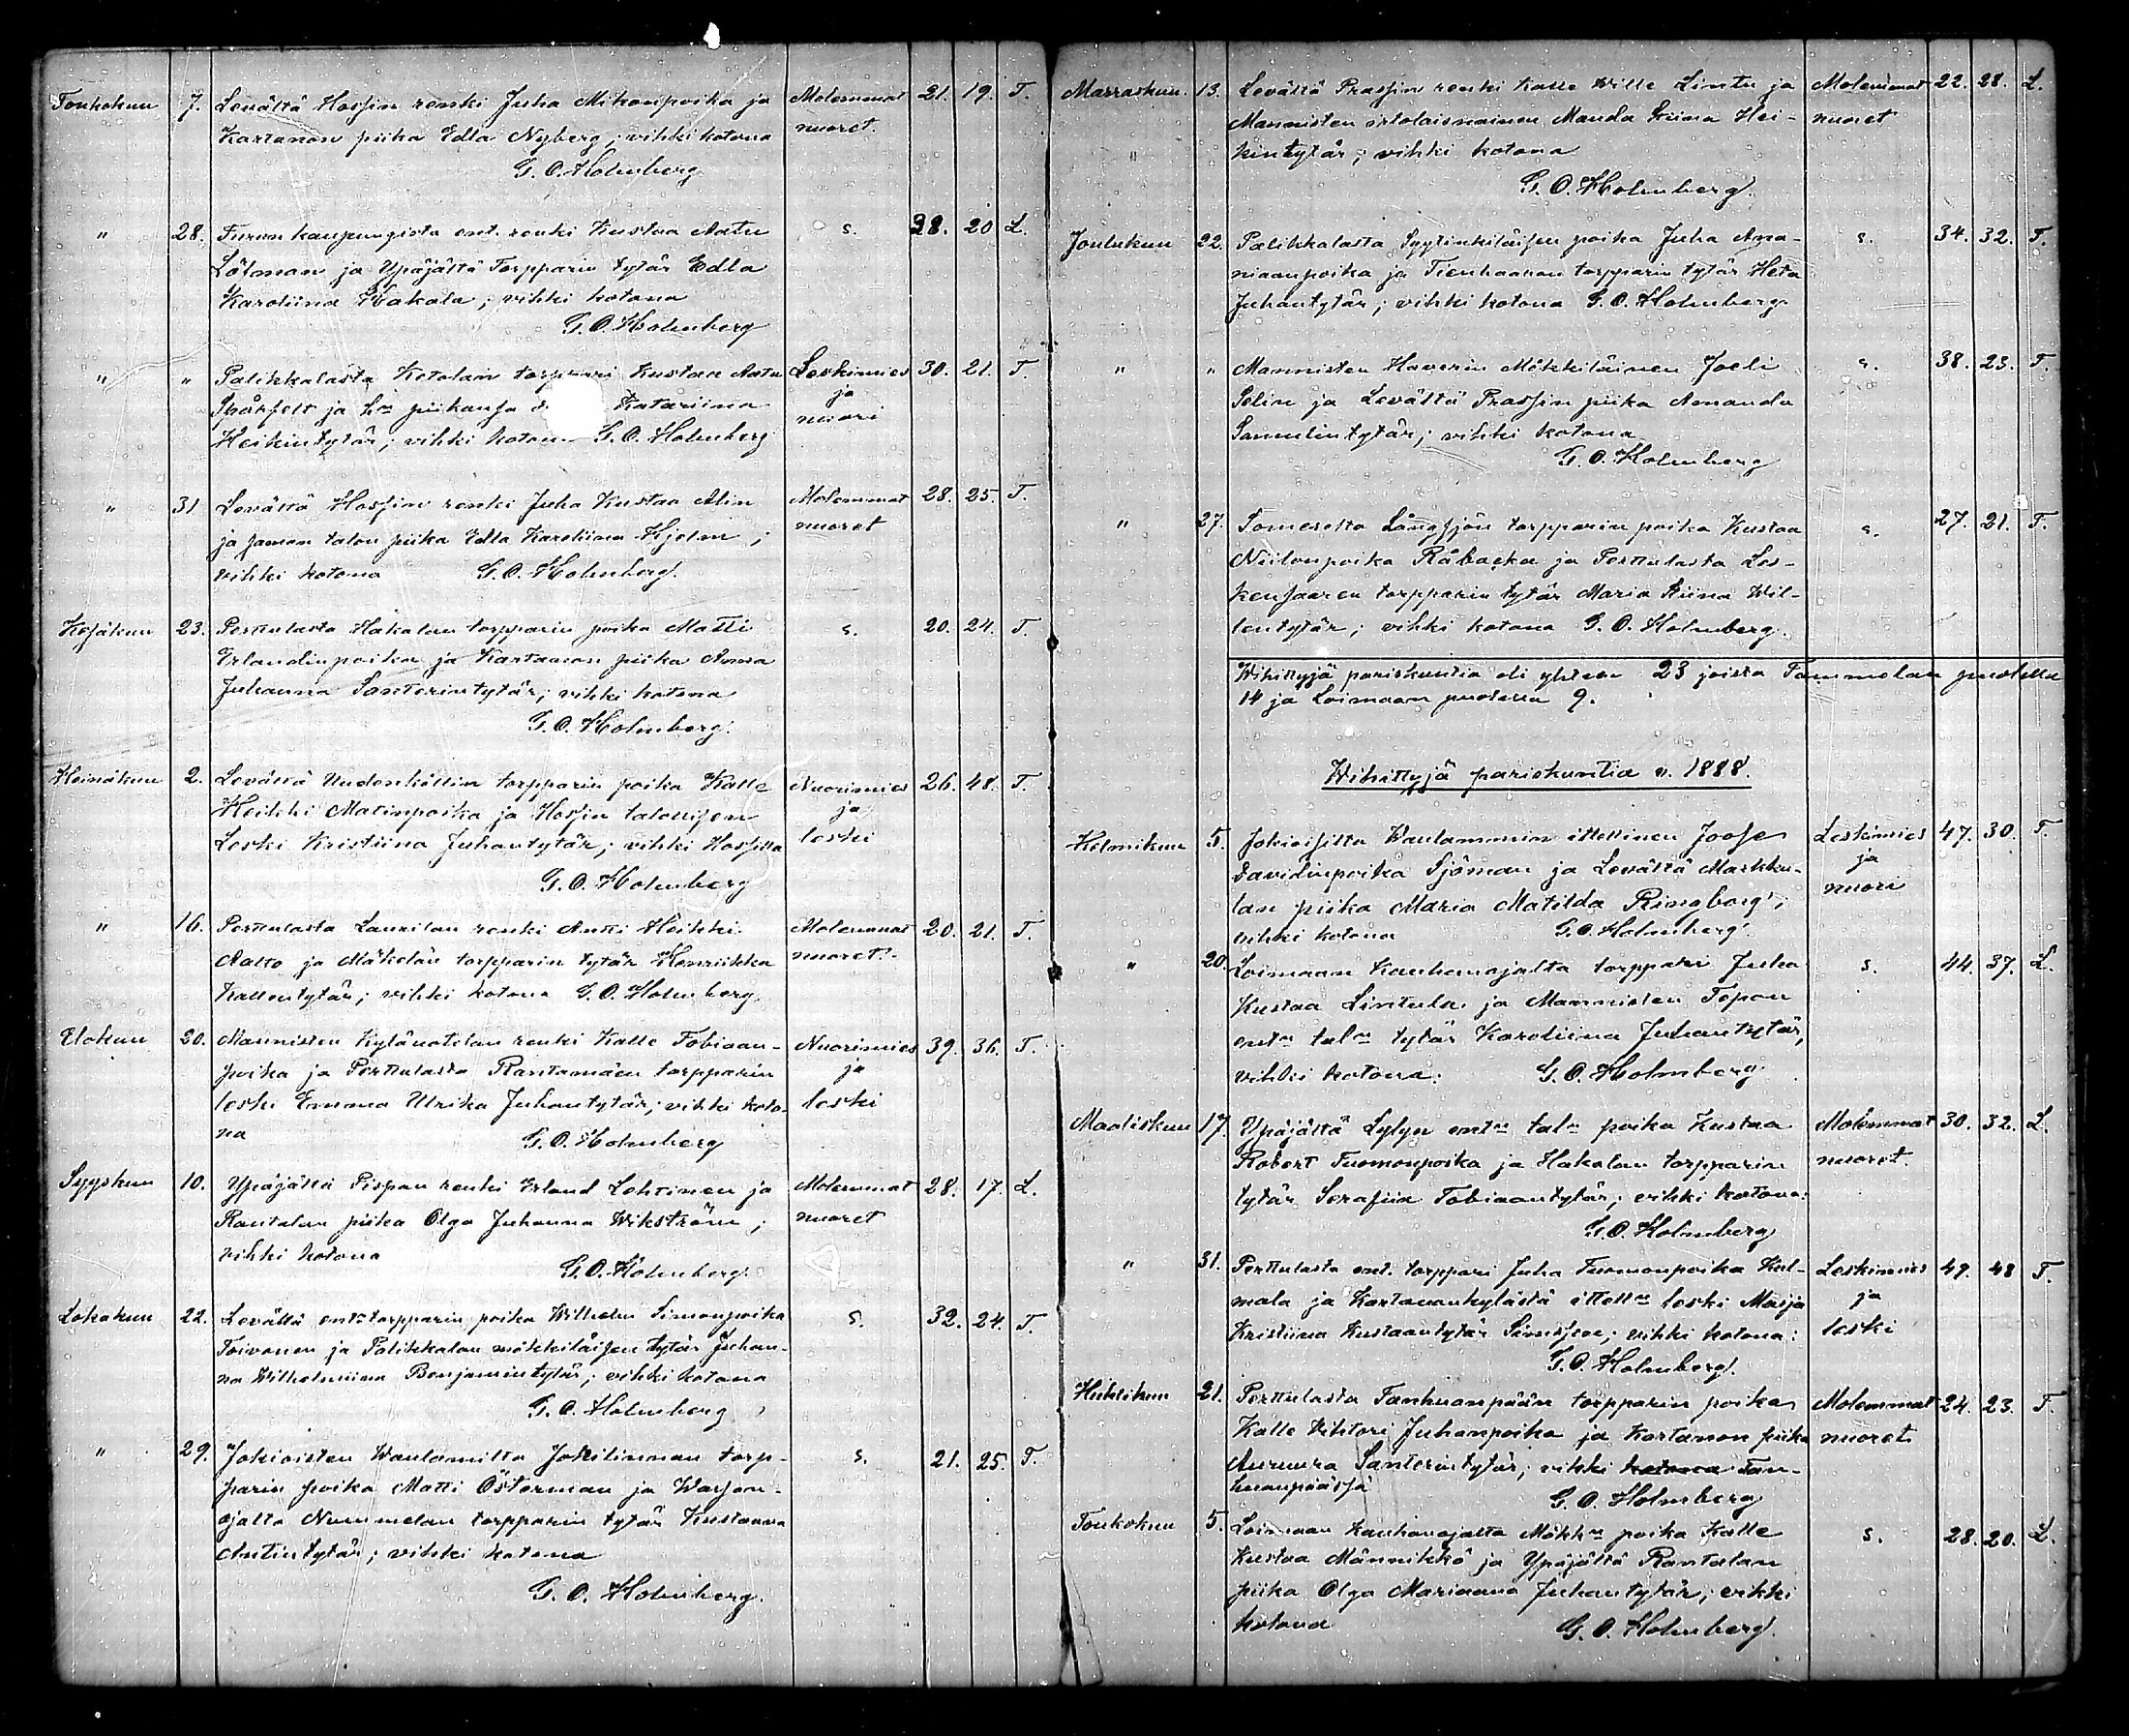 Toukokuu 7. Levältä Hossin renki Juha Mikonpoika ja Molemmat 21. 19. T.
Kartanon piika Edla Nyberg; vihki kotona nuoret.
G. O. Holmberg
" 28. Turun kaupungista ent. renki Kustaa Aatu s. 28. 20 L.
Lötman ja Ypäjältä Torpparin tytär Edla
Karoliina Hakala; vihki kotona
G. O. Holmberg
" " Palikkalasta Ketolan torppari Kustaa Aatu Leskimies 30. 21. T.
Spårfelt ja piikansa Katariina ja
Heikintytär; vihki kotona G. O. Holmberg nuori
" 31 Levältä Hossin renki Juha Kustaa Alin Molemmat 28. 25. T.
ja saman talon piika Edla Karoliina Hjelm; nuoret
vihki kotona G. O. Holmberg.
Kesäkuu 23. Perttulasta Hakalan torpparin poika Matti s. 20. 24. T.
Erlandinpoika ja Kartanon piika Anna
Juhanna Santerintytär; vihki kotona
G. O. Holmberg.
Heinäkuu 2. Levältä Uudenkällin torpparin poika Kalle Nuorimies 26. 48. T.
Heikki Matinpoika ja Hossin talollisen ja
Leski Kristiina Juhantytär; vihki Hossilla leski
G. O. Holmberg
" 16. Perttulasta Laurilan renki Antti Heikki Molemmat 20. 21. T.
Aalto ja Mäkelän torpparin tytär Henriikka nuoret.
Kallentytär; vihki kotona G. O. Holmberg
Elokuu 20. Mannisten Kylänotelan renki Kalle Tobiaan- Nuorimies 39. 36. T.
poika ja Perttulasta Rantamäen torpparin ja
leski Emma Ulrika Juhantytär; vihki koto- leski
na G. O. Holmberg
Syyskuu 10. Ypäjältä Pispan renki Erland Lehtinen ja Molemmat 28. 17. L.
Rantalan piika Olga Juhanna Wikström; nuoret
vihki kotona
G. O. Holmberg.
Lokakuu 22. Levältä ent. torpparin poika Wilhelm Simonpoika s. 32. 24. T.
Toivonen ja Palikkalan mökkiläisen tytär Juhan-
na Wilhelmiina Benjamintytär; vihki kotona
G. O. Holmberg
" 29. Jokioisten Waulamilta Jokilinnan torp- s. 21. 25. T.
parin poika Matti Österman ja Warsan-
ojalta Nummelan torpparin tytär Kustaava
Antintytär; vihki kotona
G. O. Holmberg.
Marraskuu. 13. Levältä Prassin renki Kalle Wille Lintu ja Molemmat 22. 28. L.
Mannisten irtolaisnainen Manda Stiina Hei- nuoret
" kintytär; vihki kotona
G. O. Holmberg.
Joulukuu 22. Palikkalasta Syytinkiläisen poika Juha Ana- s. 34. 32. T.
niaanpoika ja Tienhaaran torpparin tytär Heta
Juhantytär; vihki kotona G. O. Holmberg.
" " Mannisten Haverin Mökkiläinen Joeli s. 38. 23. T.
Selin ja Levältä Prassin piika Amanda
Samulintytär; vihki kotona
G. O. Holmberg
" 27. Somerolta Långsjön torpparin poika Kustaa s. 27. 21. T.
Niilonpoika Råbacka ja Perttulasta Les-
kensaaren torpparin tytär Maria Stiina Wil-
lentytär; vihki kotona G. O. Holmberg.
Wihittyjä pariskuntia oli yhteen 23 joista Tammelan puolella
14 ja Loimaan puolella 9.
Wihittyjä pariskuntia v. 1888.
Helmikuu 5. Jokioisilta Waulammin itellinen Joose Leskimies 47. 30. T.
Davidinpoika Sjöman ja Levältä Markku- ja
lan piika Maria Matilda Ringborg; nuori
vihki kotona G. O. Holmberg.
" 20. Loimaan Kauhanojalta torppari Juha s. 44. 37. L.
Kustaa Lintula ja Mannisten Topon
ent. tal:n tytär Karoliina Juhantytär,
vihki kotona: G. O. Holmberg
Maaliskuu 17. Ypäjältä Lylyn ent:n tal:n poika Kustaa Molemmat 30. 32. L.
Robert Tuomonpoika ja Hakalan torpparin nuoret.
tytär Serafiia Tobiaantytär; vihki kotona:
G. O. Holmberg
" 31. Perttulasta ent. torppari Juha Tuomonpoika Kul- Leskimies 49. 48 T.
mala ja Kartanonkylästä itell:n leski Maija ja
Kristiina Kustaantytär; vihki kotona: leski
G. O. Holmberg.
Huhtikuu 21. Perttulasta Tanhuanpään torpparin poika Molemmat 24. 23. T.
Kalle Vihtori Juhanpoika ja Kartanon piika nuoret.
Auruura Santerintytär; vihki kotona Tan-
huanpäässä G. O. Holmberg
Toukokuu 5. Loimaan Kauhanojalta Mökk:n poika Kalle s. 28. 20. L.
Kustaa Männikkö ja Ypäjältä Rantalan
piika Olga Mariaana Juhantytär; vihki
kotona G. O. Holmberg.